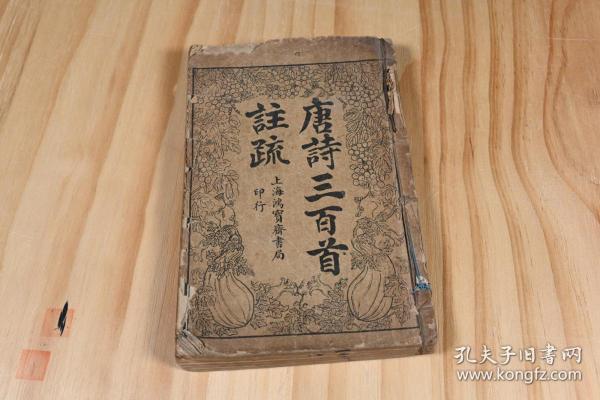 唐詩三百首
註疏
上海鴻寶齋書局
印行
孔夫子旧書网
www.kongfz.com